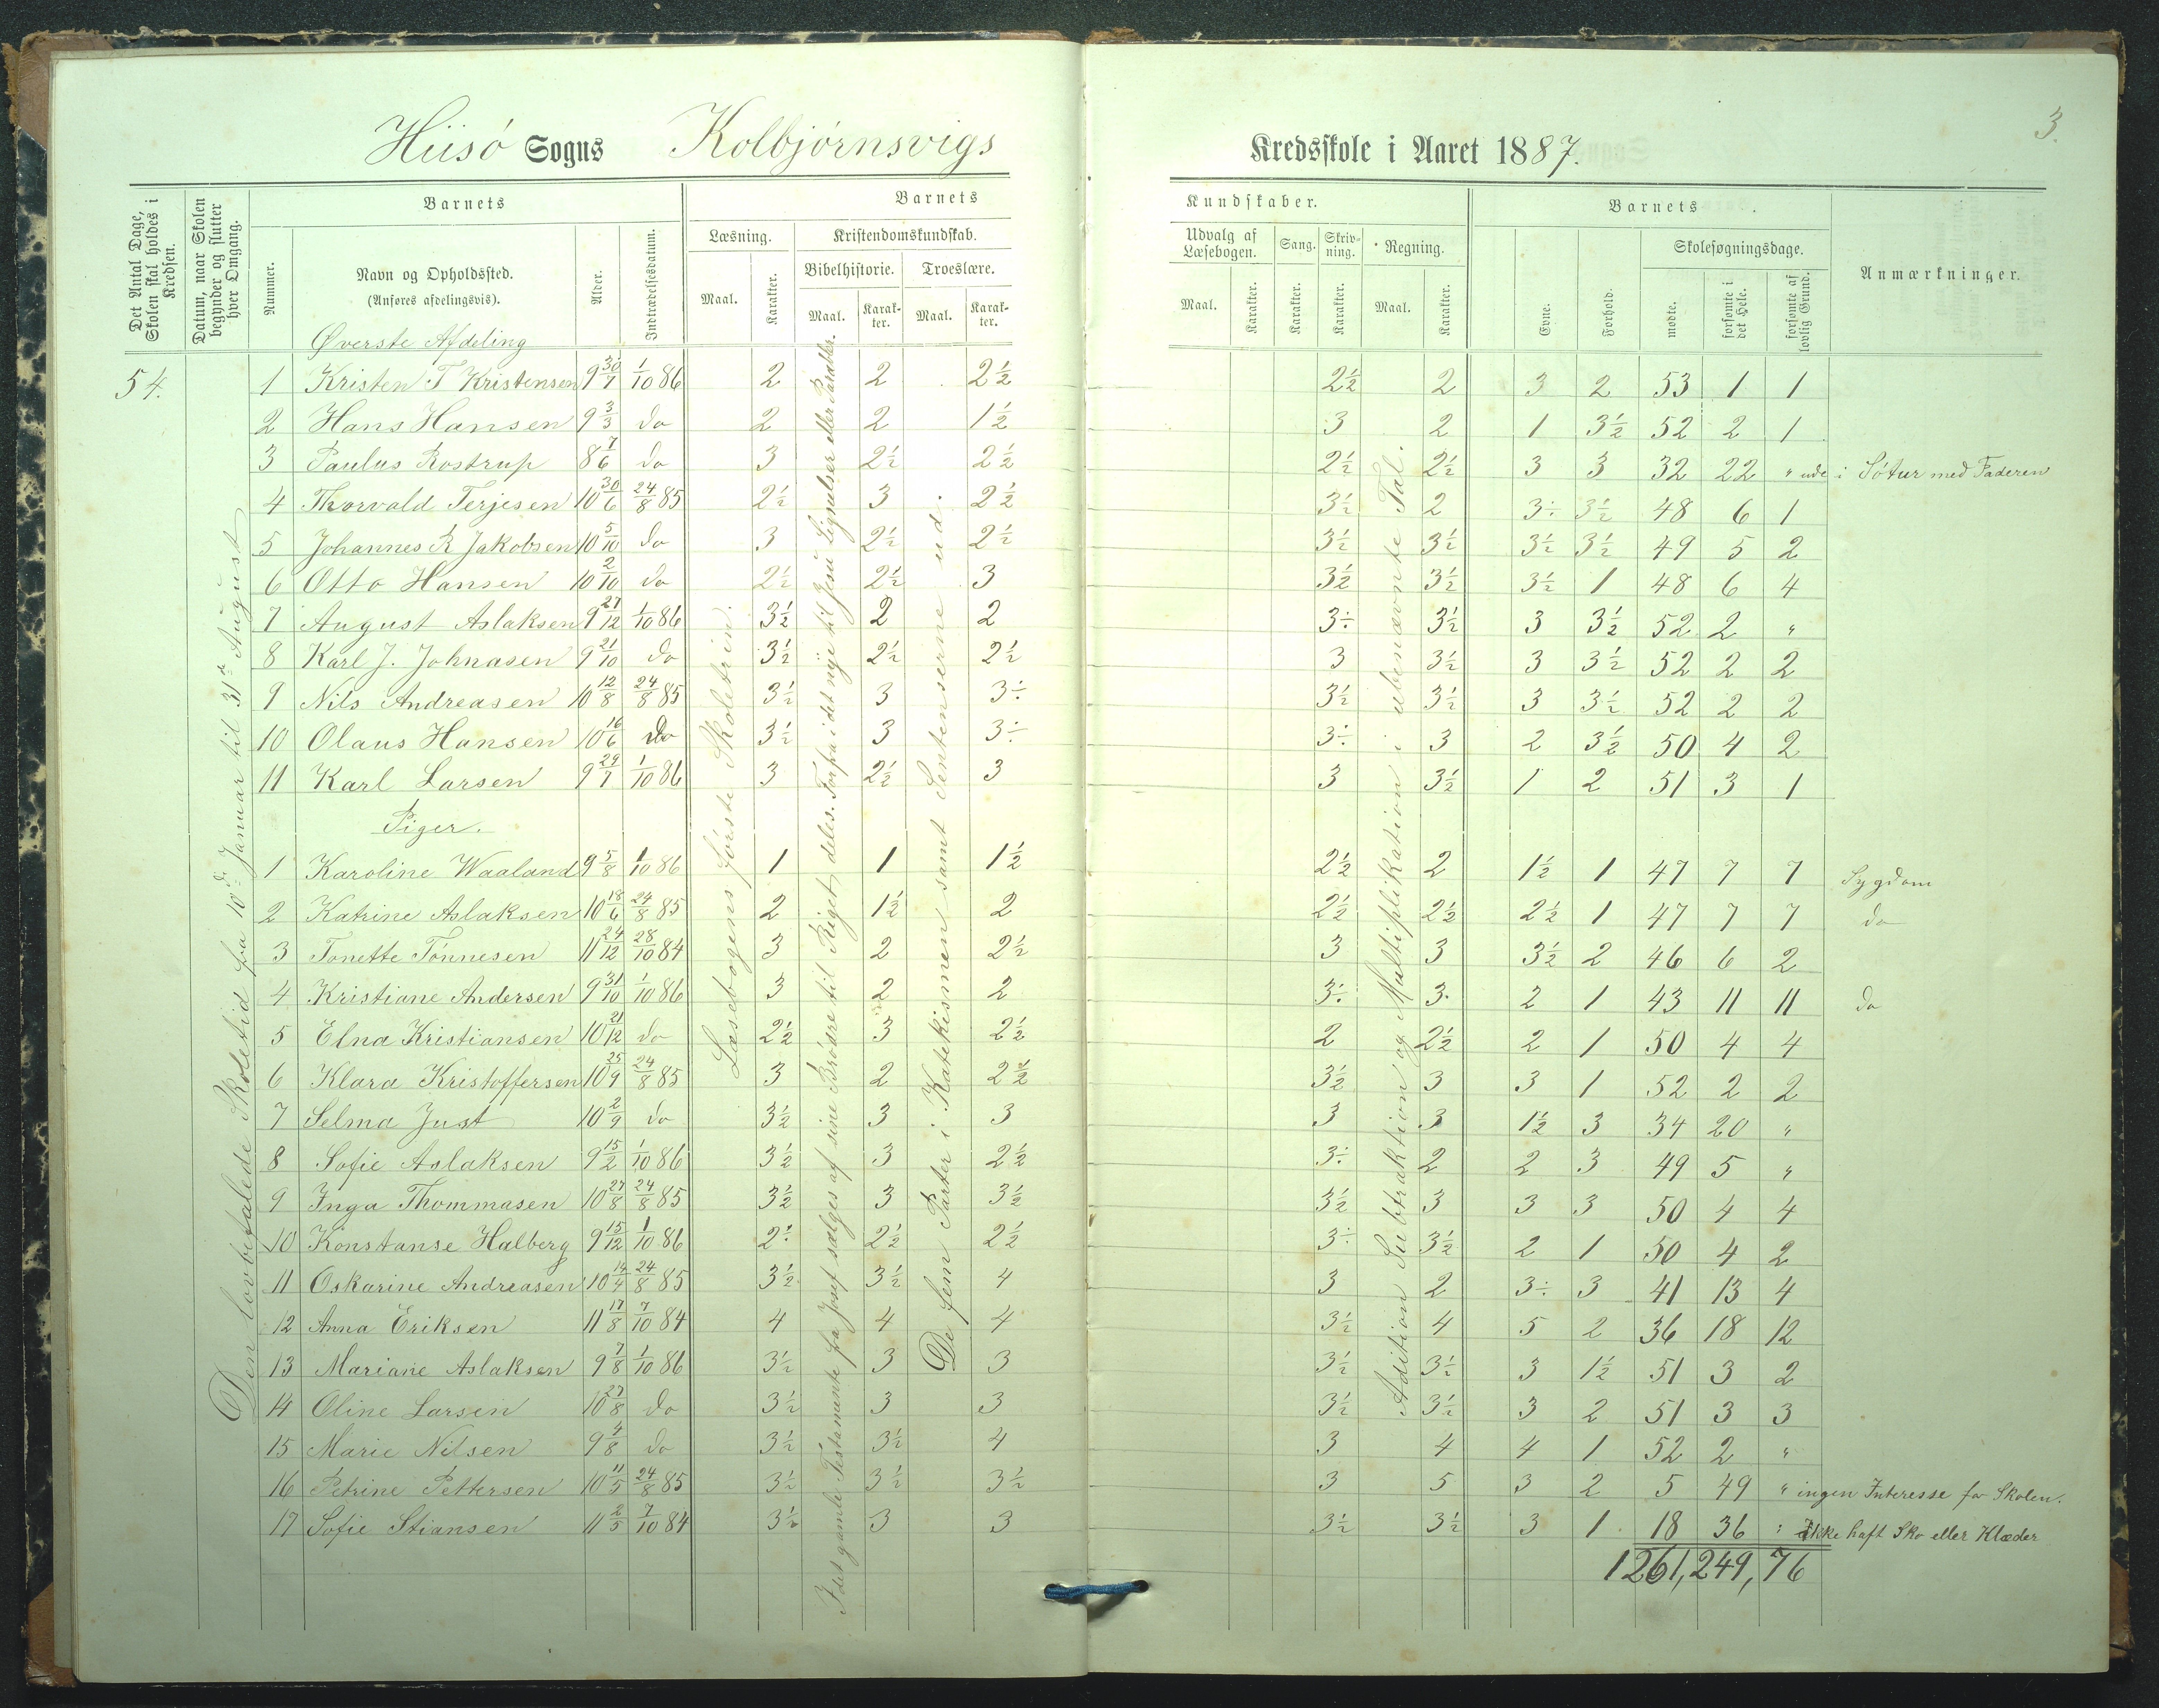 Hiisö Sogns Kolbjörnsvigs Kredsskole i Aaret 1887.
3.
Det Antal Dage, Skolen skal holdes i Kredsen.
Datum, naar Skolen begynder og slutter hver Omgang.
Barnets
Nummer.
Navn og Opholdssted.
(Anføres afdelingsvis).
Alder.
Indtrædelsesdatum.
Barnets
Læsning.
Maal.
Karakter.
Kristendomskundskab.
Bibelhistorie.
Maal.
Karakter.
Troeslære.
Maal.
Karakter.
Kundskaber.
Udvalg af Læsebogen.
Maal.
Karakter.
Sang.
Karakter.
Skrivning.
Karakter.
Regning.
Maal.
Karakter.
Barnets
Evne.
Forhold.
Skolesøgningsdage.
mødte.
forsømte i det Hele.
forsømte af lovlig Grund.
Anmærkninger.
Øverste Afdeling
54. 1 Kristen T Kristensen 9 30/7 1/10 86 2 2 2½ 2½ 2 3 2 53 1 1
2 Hans Hansen 9 3/3 do 2 2 1½ 3 2 1 3½ 52 2 1
3 Paulus Rostrup 8 7/6 do 3 2½ 2½ 2½ 2½ 3 3 32 22 " ude i Sötur med Faderen
4 Thorvald Terjesen 10 30/6 24/8 85 2½ 3 2½ 3½ 2 3÷ 3½ 48 6 1
5 Johannes R Jakobsen 10 5/10 do 3 2½ 2½ 3½ 3½ 3½ 3½ 49 5 2
6 Otto Hansen 10 2/10 do 2½ 2½ 3 3½ 3½ 3½ 1 48 6 4
7 August Aslaksen 9 27/12 1/10 86 3½ 2 2 3÷ 3½ 3 3½ 52 2 "
8 Karl J. Johnasen 9 21/10 do 3½ 2½ 2½ 3 3½ 3 3½ 52 2 2
9 Nils Andreasen 10 12/8 24/8 85 3½ 3 3÷ 3½ 3½ 3 3½ 52 2 2
10 Olaus Hansen 10 16/6 do 3½ 3 3÷ 3÷ 3 2 3½ 50 4 2
11 Karl Larsen 9 29/7 1/10 86 3 2½ 3 3 3½ 1 2 51 3 1
Piger.
1 Karoline Waaland 9 5/8 1/10 86 1 1 1½ 2½ 2 1½ 1 47 7 7 Sygdom
2 Katrine Aslaksen 10 18/6 24/8 85 2 1½ 2 2½ 2½ 2½ 1 47 7 7 do
3 Tonette Tönnesen 11 24/12 28/10 84 3 2 2½ 3 3 3½ 2 46 6 2
4 Kristiane Andersen 9 31/10 1/10 86 3 2 2 3÷ 3. 2 1 43 11 11 do
5 Elna Kristiansen 10 21/12 do 2½ 3 2½ 2 2½ 2 1 50 4 4
6 Klara Kristoffersen 10 25/9 24/8 85 3 2 2½ 3½ 3 3 1 52 2 2
7 Selma Just 10 2/9 do 3½ 3 3 3 3 1½ 3 34 20 "
8 Sofie Aslaksen 9 15/2 1/10 86 3½ 3 2½ 3÷ 2 2 3 49 5 "
9 Inga Thommasen 10 27/8 24/8 85 3½ 3 3½ 3½ 3 3 3 50 4 4
10 Konstanse Halberg 9 15/12 1/10 86 2÷ 2½ 2½ 3÷ 3½ 2 1 50 4 2
11 Oskarine Andreasen 10 14/4 24/8 85 3½ 3½ 4 3 2 3÷ 3 41 13 4
12 Anna Eriksen 11 17/8 7/10 84 4 4 4 3½ 4 5 2 36 18 12
13 Mariane Aslaksen 9 7/8 1/10 86 3½ 3 3 3½ 3½ 3 1½ 51 3 2
14 Oline Larsen 10 27/8 do 3½ 3 3 3½ 3½ 3 2 51 3 3
15 Marie Nilsen 9 4/8 do 3½ 3½ 4 3 4 4 1 52 2 "
16 Petrine Pettersen 10 11/5 24/8 85 3½ 3½ 3½ 3 5 3 2 5 49 " ingen Interesse for Skolen.
17 Sofie Stiansen 11 2/5 7/10 84 3½ 3 3 3½ 3½ 3 1 18 36 : Ikke haft Sko eller Klæder
1261, 249, 76
Den lovbefalede Skoletid fra 10de Januar til 31te August
Læsebogens første Skoletrin.
I det gamle Testamente fra Josef sælges af sine Brödre til Riget deles. Forfra i det nye til Jesu Lignelser eller Parabler.
De fem Parter i Katekismen samt Sentenserne ud.
Adition Subtraktion og Multiplikation i ubenævnte Tal.